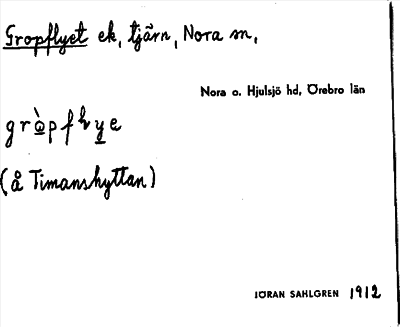 Gropflyet ek, tjärn, Nora sn,
Nora o. Hjulsjö hd, Örebro län
(å Timanshyttan)
JÖRAN SAHLGREN 1912